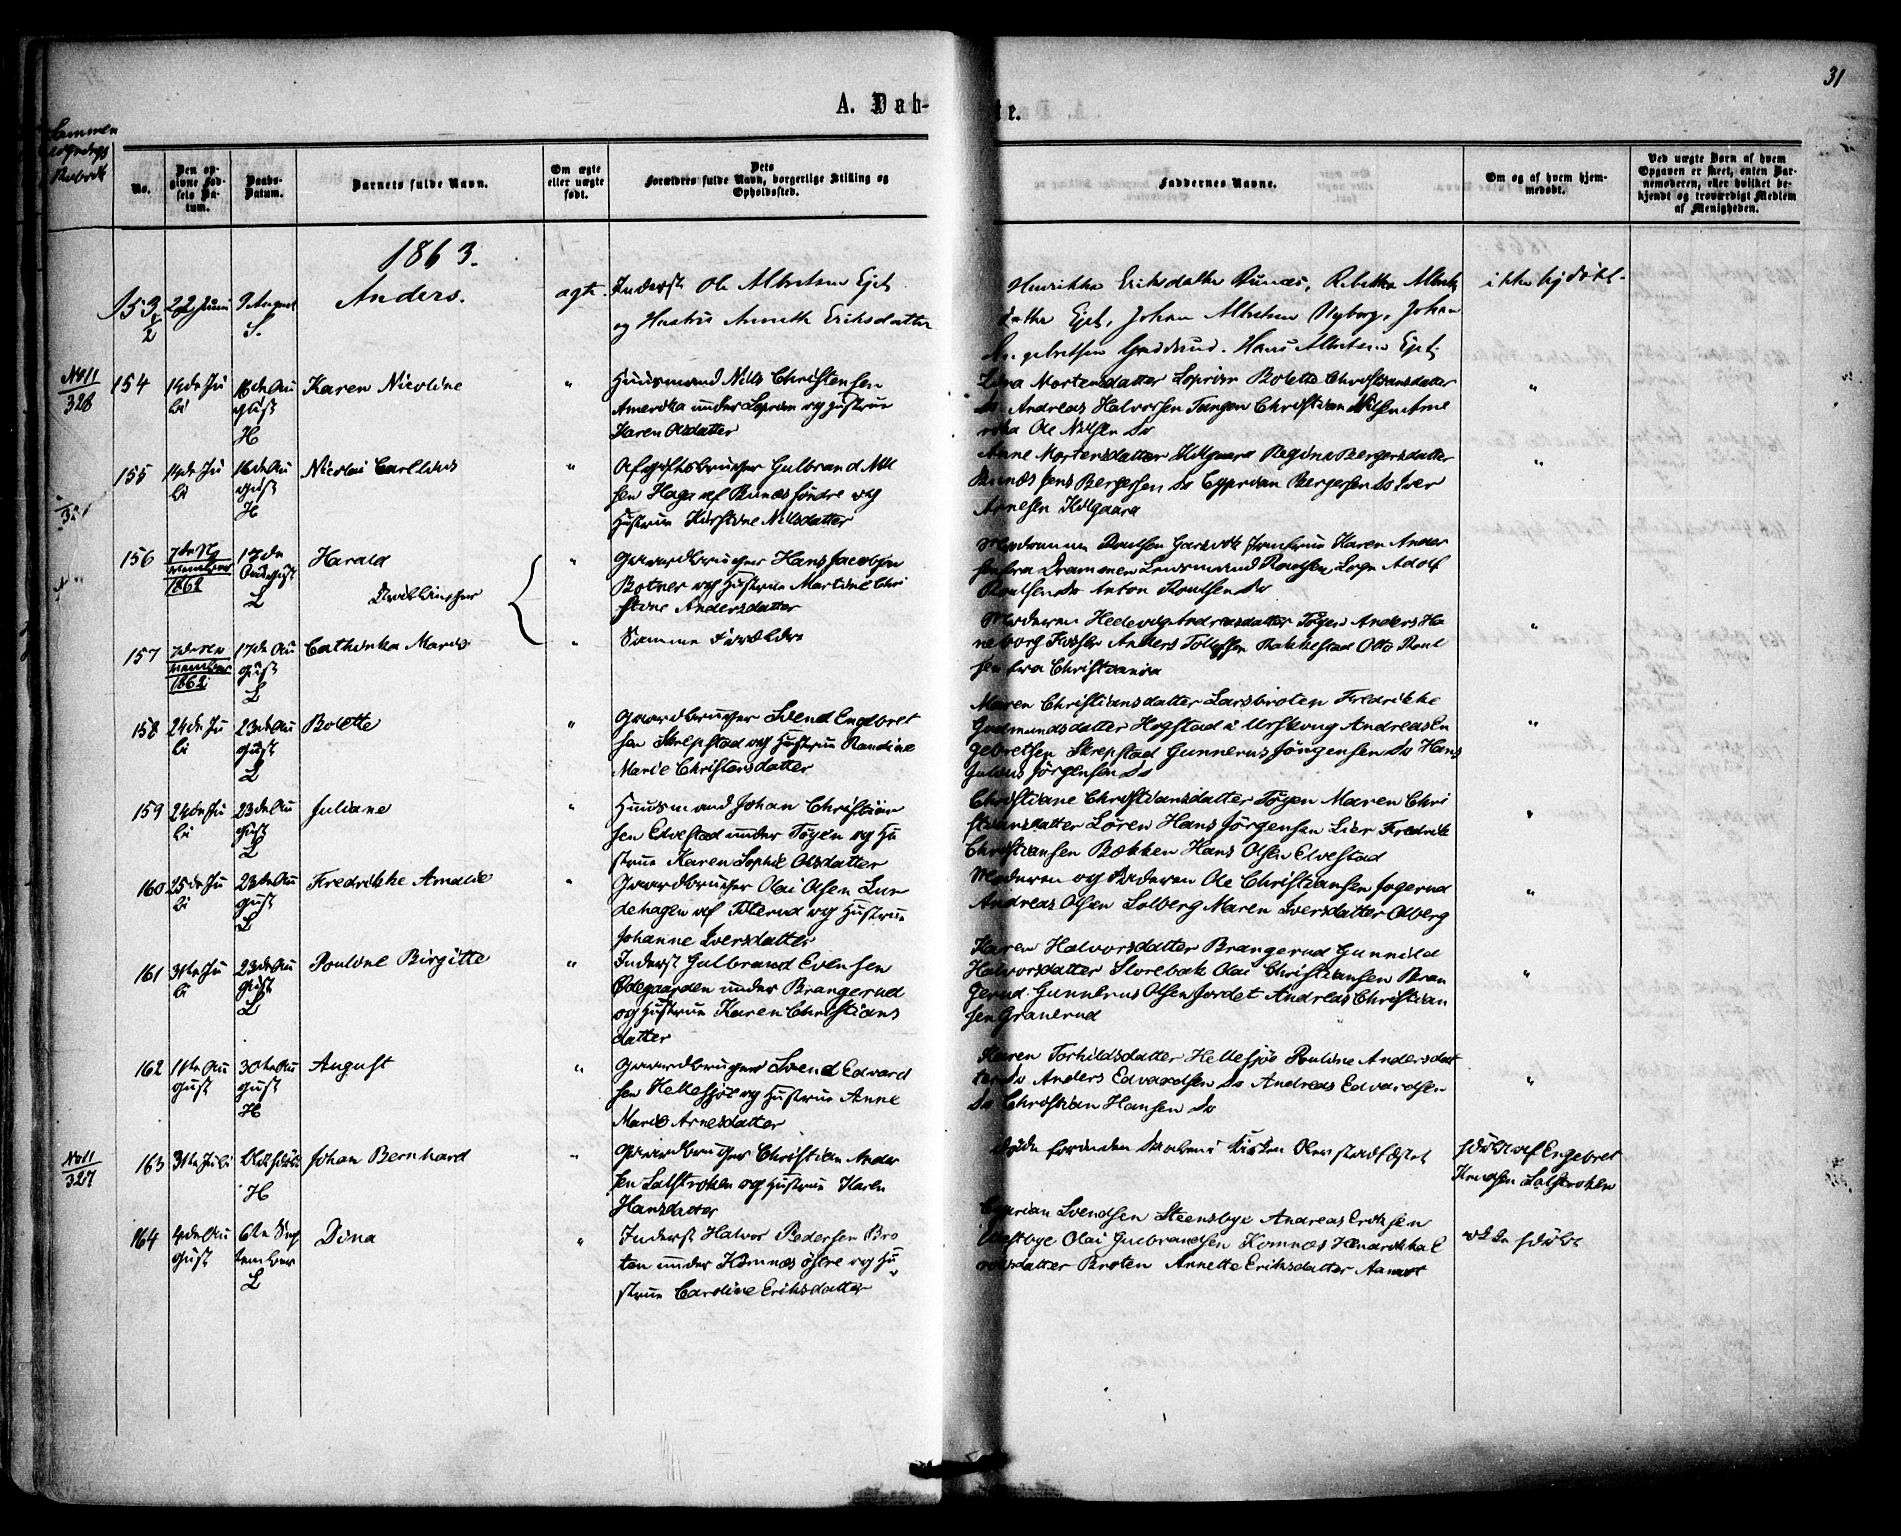 31
A. Døb-
te.
Sammen
Rubrik
No.
Den op-
givne Fød-
sels Da-
tum.
Daabs-
Datum.
Barnets fulde Navn.
Om ægte
eller uægte
født.
Dets
Forældres fulde Navn, borgerlige Stilling og
Opholdssted.
Faddernes Navne.
Om og af hvem hjem-
medøbt.
Ved uægte Børn af hvem
Opgaven er skeet, enten Bar-
nemoderen, eller hvilket be-
kjendt og troværdigt Medlem
af Menigheden.
1863.
153 1/2
22 Juni
9 August
S.
Anders.
ægte.
Inderst Ole Albertsen Ejet
og Hustru Annette Eriksdatter
Henrikke Eriksdatter Bunæs, Rebekka Alberts
datter Ejet, Johan Albertsen Nyborg, Johan
Engebretsen Gudderud. Hans Albertsen Ejet.
ikke hjdøbt.
No 11
328
154
14de Ju
li
16de Au
gust
H
Karen Nicoline
"
Huusmand Nils Christensen
Amerika under Soprim og Hustrue
Karen Olsdatter
Lina Mortensdatter Soprim Bolette Christiansdatter
Do Andreas Halvorsen Tangen Christian Nilsen Ame
rika Ole Nilsen Do
"
155
14de Ju
li
16de Au
gust
H
Nicolai Carelius
"
Afgiftsbruger Gulbrand Nil
sen Haga af Bunæs søndre og
Hustrue Kirstine Nilsdatter
Anne Mortensdatter Kilgaard Regine Bergersdatter
Bunæs Jens Bergersen Do Cyprian Bergersen Do Iver
Arnesen Kilgaard
"
156
7de No
vember
1862
17de
August
L
Harald
Tvillinger
"
Gaardbruger Hans Jacobsen
Botner og Hustrue Martine Chri
stine Andersdatter
Madamme Poulsen Jomfrue Karen Ander
sen fra Drammen Lensmand Poulsen Adolf
Poulsen Do Anton Poulsen Do
157
7de No
vember
1862
17de Au
gust
L
Cathinka Marie
"
Samme Forældre
Moderen Hedevig Andreasdatter Tøyen Anders Ha
neborg Anders Tollefsen Rakkelstad Otto Poul
sen fra Christiania
"
158
24de Ju
li
23de Au
gust
L
Bolette
"
Gaardbruger Svend Engebret
sen Skrepstad og Hustrue Randine
Marie Christensdatter
Maren Christiansdatter Larsbroten Fredrikke
Gudmundsdatter Hogstad i Urskoug Andreas En
gebretsen Skrepstad Gunnerus Jørgensen Do Hans
Julius Jørgensen Do
"
159
24de Ju
li
23de Au
gust
L
Juliane
"
Huusmand Johan Christian
sen Elvestad under Tøyen og Hu
strue Karen Sophie Olsdatter
Christiane Christiansdatter Tøyen Maren Chri
stiansdatter Løren Hans Jørgensen Lier Fredrik
Christiansen Bækken Hans Olsen Elvestad
"
160
25de Ju
li
23de Au
gust
L
Fredrikke Amalie
"
Gaardbruger Olai Olsen Lun
dehagen af Toterud og Hustrue
Johanne Iversdatter
Moderen og Faderen Ole Christiansen Jogerud
Andreas Olsen Solberg Maren Iversdatter Olberg
"
161
31te Ju
li
23de Au
gust
L
Pouline Birgitte
"
Inderst Gulbrand Evensen
Ødegaarden under Brangerud
og Hustrue Karen Christians
datter
Karen Halvorsdatter Brangerud Gunnild
Halvorsdatter Storebak Olai Christiansen Bran
gerud. Gunnerus Olsen Jordet Andreas Christian
sen Granerud
"
162
11te Au
gust
30te Au
gust
H
August
"
Gaardbruger Svend Edvard
sen Hellesjøe og Hustrue Anne
Marie Arnesdatter
Karen Torhildsdatter Hellesjøe Pouline Andersdat
ter Do Anders Edvardsen Do Andreas Edvardsen
Do Christian Hansen Do
"
No 11
327
163
31te Juli
H
Johan Bernhard
"
Gaardbruger Christian Ander
sen Løstroken og Hustrue Karen
Hansdatter
Døde forinden Daaben i Kirken blev stadfæstet
hjdøbt af Engebret
Knudsen
164
4de Au
gust
6te Sep
tember
L
Dina
"
Inderst Halvor Pedersen Bro
ten under Komnæs østre og Hu
strue Caroline Eriksdatter
Cyprian Svendsen Steensbye Andreas Eriksen
Vestbye Olai Gulbrandsen Komnæs Hendrikka E
riksdatter Broten Annette Eriksdatter
ikke hjdøbt